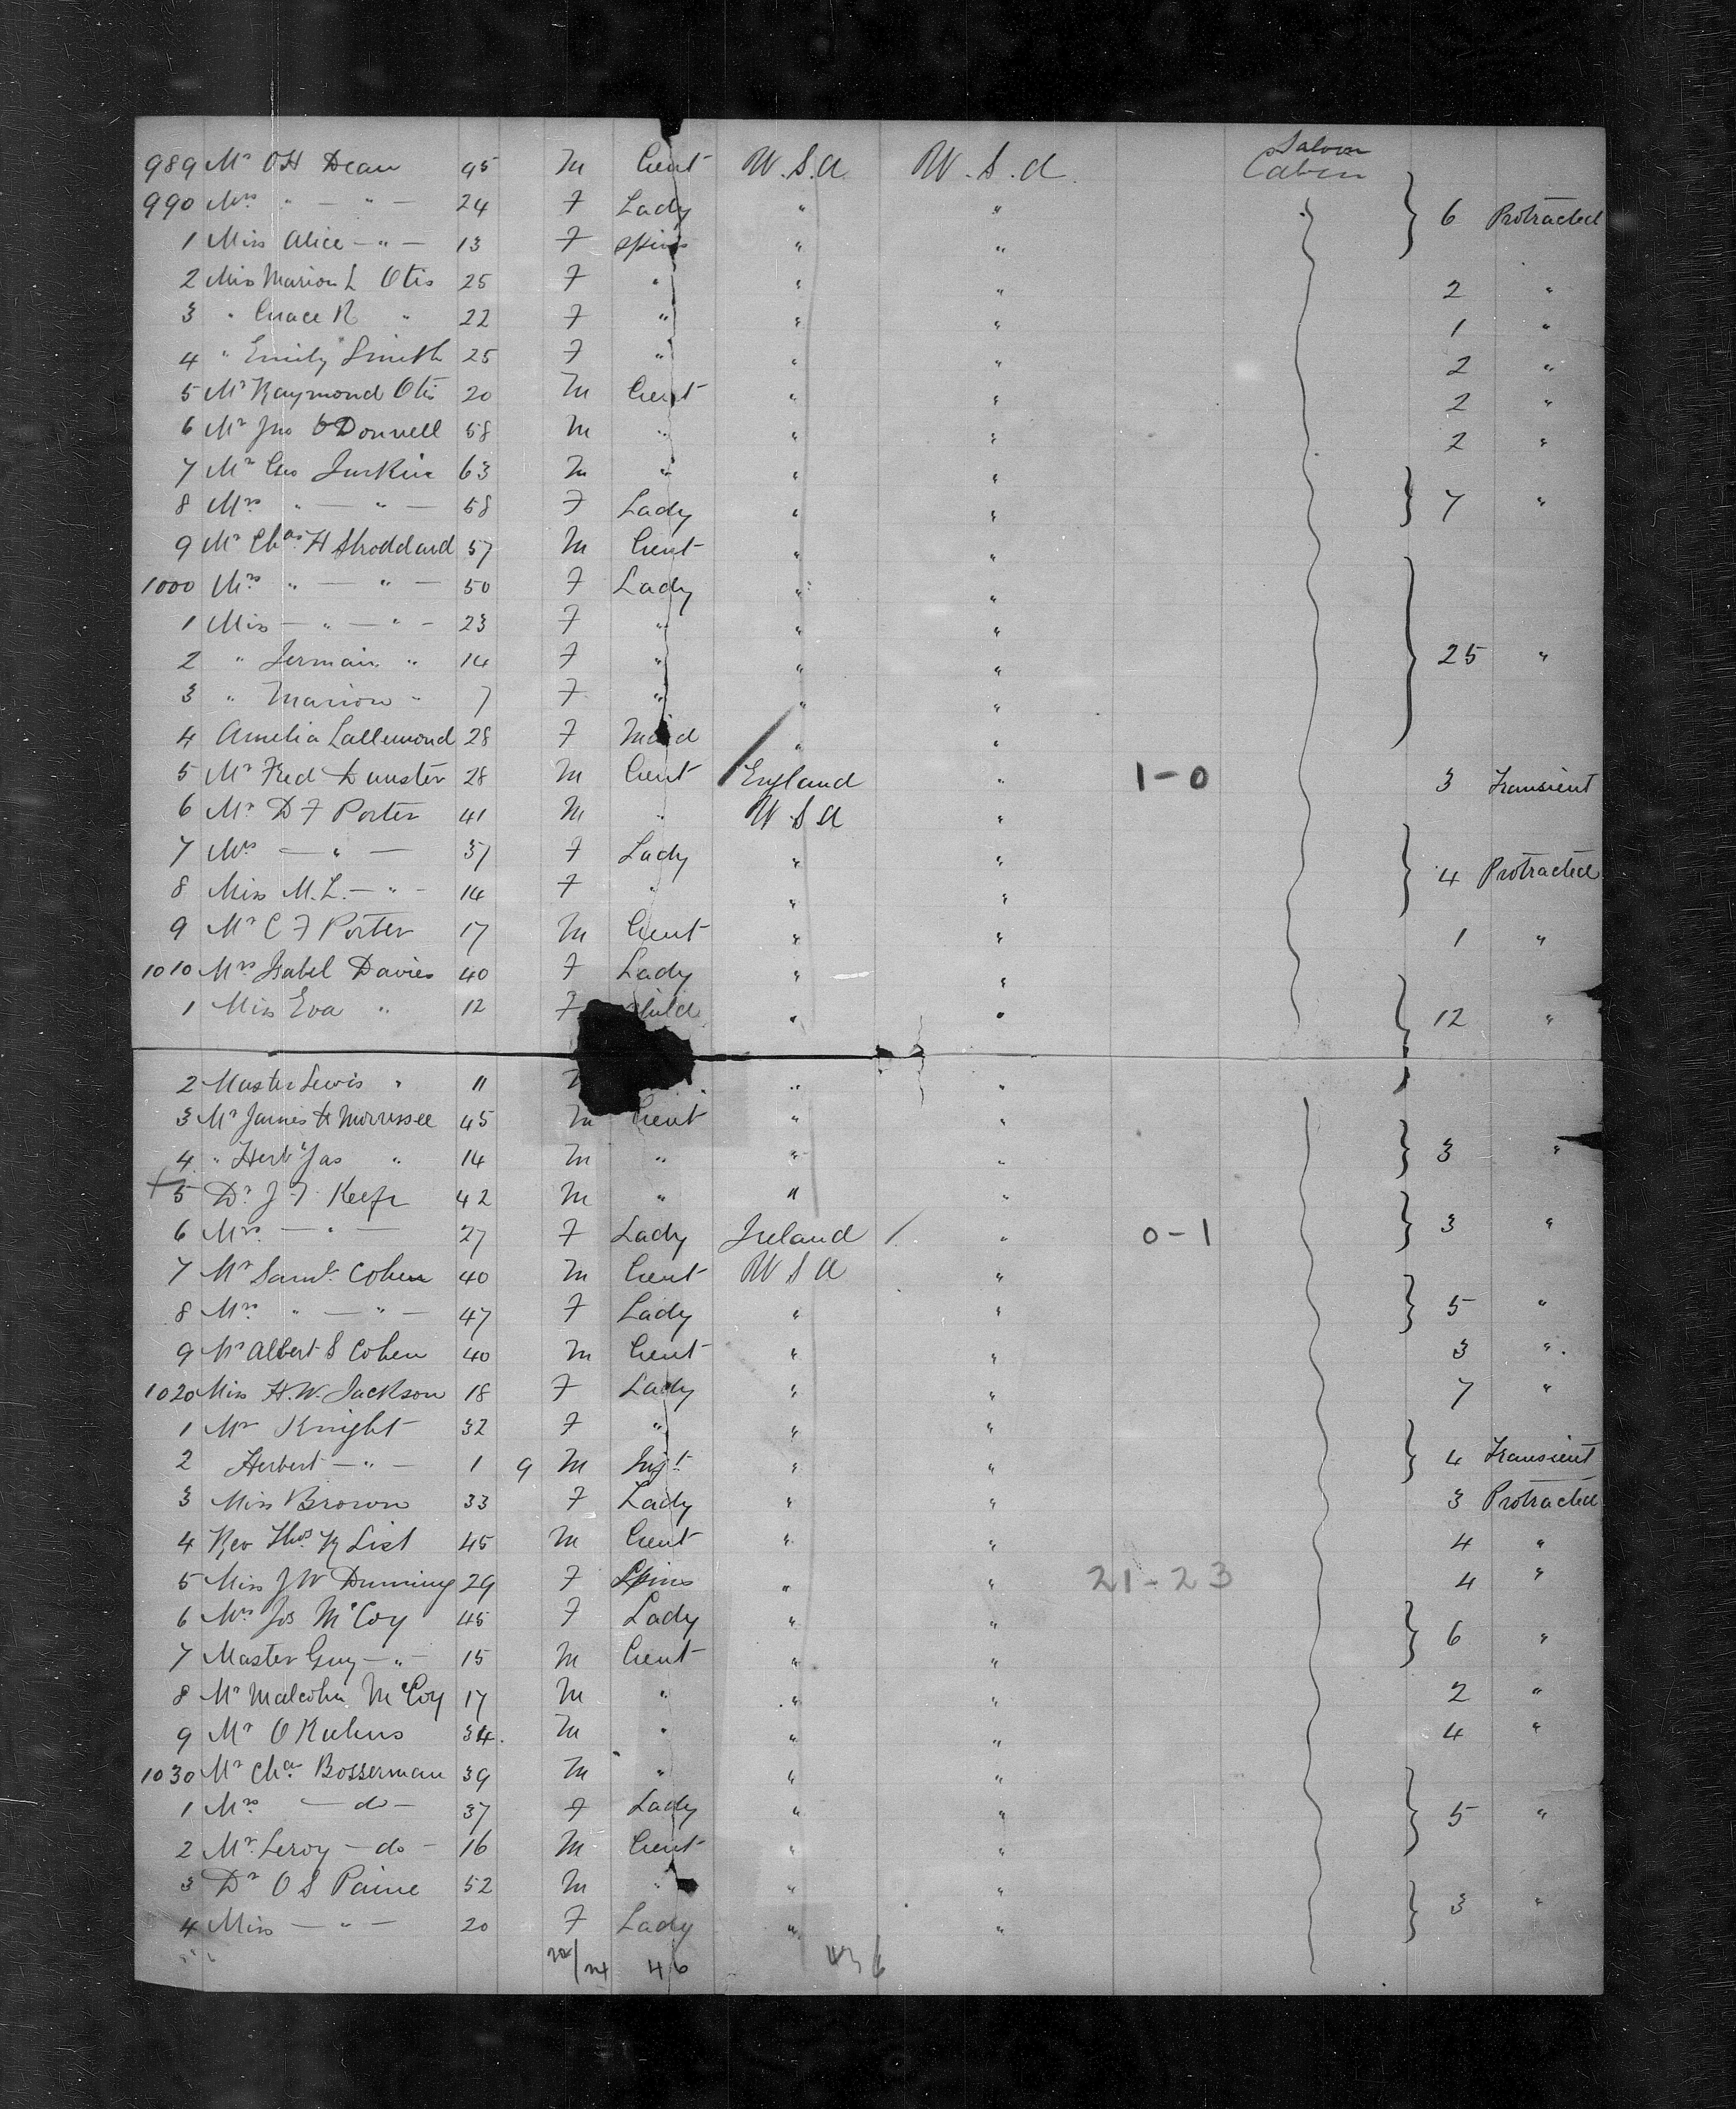 989 Mr O H Dean 45 M Gent U.S.A. U.S.A. Saloon Cabin
990 Mrs " — " — 24 F Lady " " } 6 Protracted
1 Miss Alice — " — 13 F Spins " "
2 Miss Marion L Otis 25 F " " " 2 "
3 " Grace R " 22 F " " " 1 "
4 " Emily Smith 25 F " " " 2 "
5 Mr Raymond Otis 20 M Gent " " 2 "
6 Mr Jno O'Donnell 58 M " " " 2 "
7 Mr Geo Junkin 63 M " " "
8 Mrs " — " — 58 F Lady " " } 7 "
9 Mr Chas H Stoddard 57 M Gent " "
1000 Mrs " — " — 50 F Lady " "
1 Miss — " — " — 23 F " " "
2 " Jermain " 14 F " " " } 25 "
3 " Marion " 7 F " " "
4 Amelia Lallemond 28 F Maid " "
5 Mr Fred Dunster 28 M Gent England " 1-0 3 Transient
6 Mr D F Porter 41 M " U S A "
7 Mrs — " — 37 F Lady " "
8 Miss M.L. — " — 14 F " " " } 4 Protracted
9 Mr C F Porter 17 M Gent " " 1 "
1010 Mrs Isabel Davies 40 F Lady " "
1 Miss Eva " 12 F Child " " } 12 "
2 Master Lewis " 11 " "
3 Mr James H Morrissee 45 M Gent " "
4 " Herbt Jas " 14 M " " " } 3 "
5 Dr J F Keefe 42 M " " "
6 Mrs — " — 27 F Lady Ireland / " 0-1 } 3 "
7 Mr Saml Cohen 40 M Gent U S A "
8 Mrs " — " — 47 F Lady " " } 5 "
9 Mr Albert S Cohen 40 M Gent " " 3 "
1020 Miss H.W. Jackson 18 F Lady " " 7 "
1 Mrs Knight 32 F " " "
2 Herbert — " — 1 9 M Inft " " } 4 Transient
3 Miss Brown 33 F Lady " " 3 Protracted
4 Rev Thos R List 45 M Gent " " 4 "
5 Miss J W Dunning 29 F Spins " " 21-23 4 "
6 Mrs Jos McCoy 45 F Lady " "
7 Master Guy — " — 15 M Gent " " } 6 "
8 Mr Malcolm McCoy 17 M " " " 2 "
9 Mr O Kuhns 34. M " " " 4 "
1030 Mr Chas Bosserman 39 M " " "
1 Mrs — do — 37 F Lady " " } 5 "
2 Mr Leroy — do — 16 M Gent " "
3 Dr O S Paine 52 M " " "
4 Miss — " — 20 F Lady " " } 3 "
22/24 46